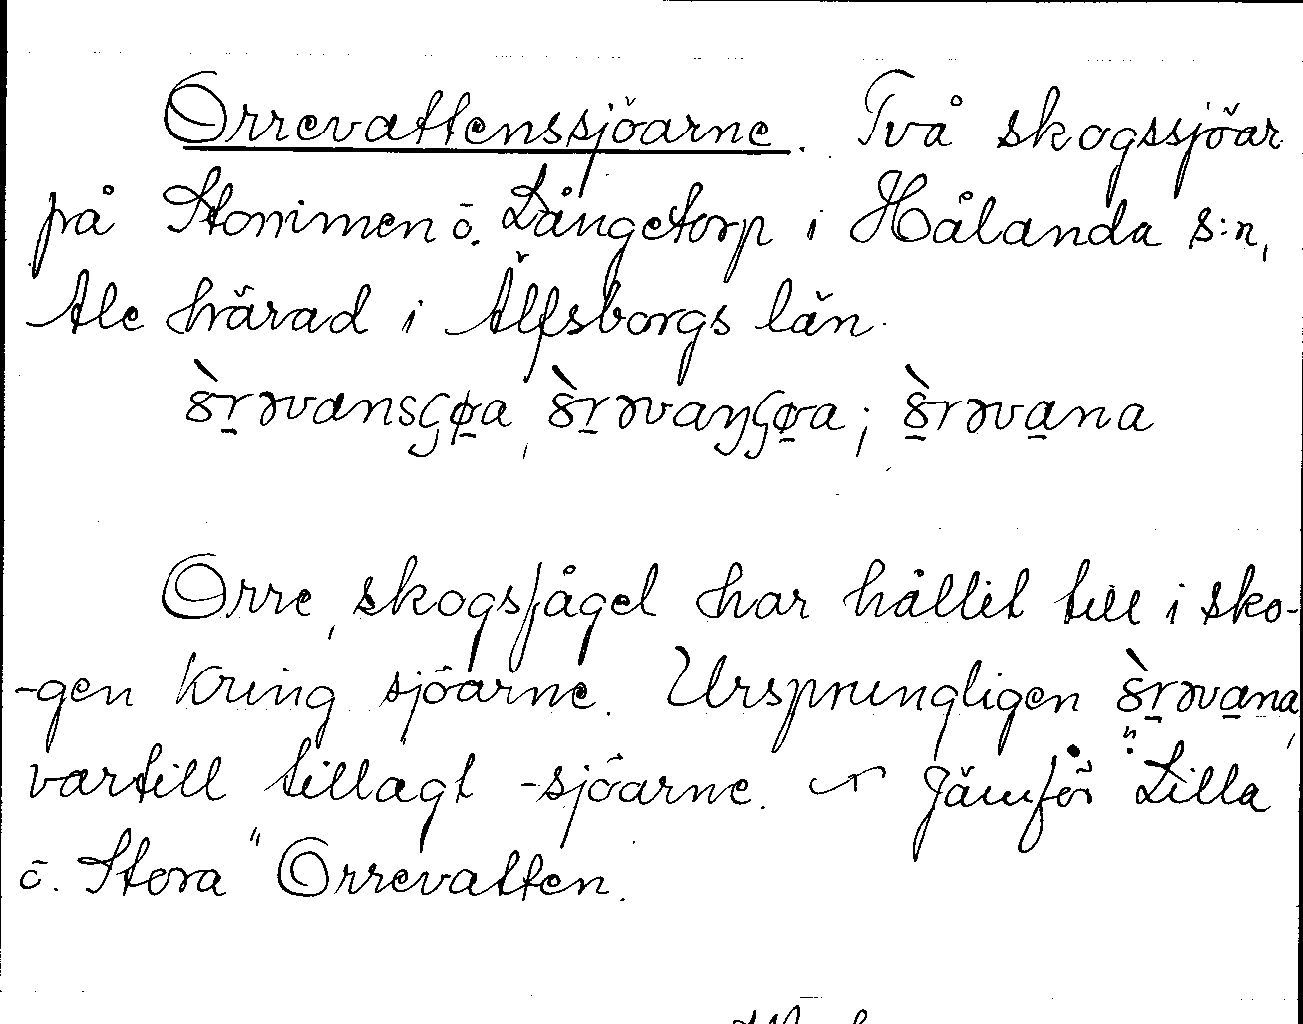 Orrevattenssjöarne. Två skogssjöar
på Stommen ō. Långetorp i Hålanda s:n,
Ale härad i Älfsborgs län.
Orre, skogsfågel har hållit till i sko-
-gen kring sjöarne. Ursprungligen
vartill tillagt -sjöarne. Jämför "Lilla
ō. Stora" Orrevatten.